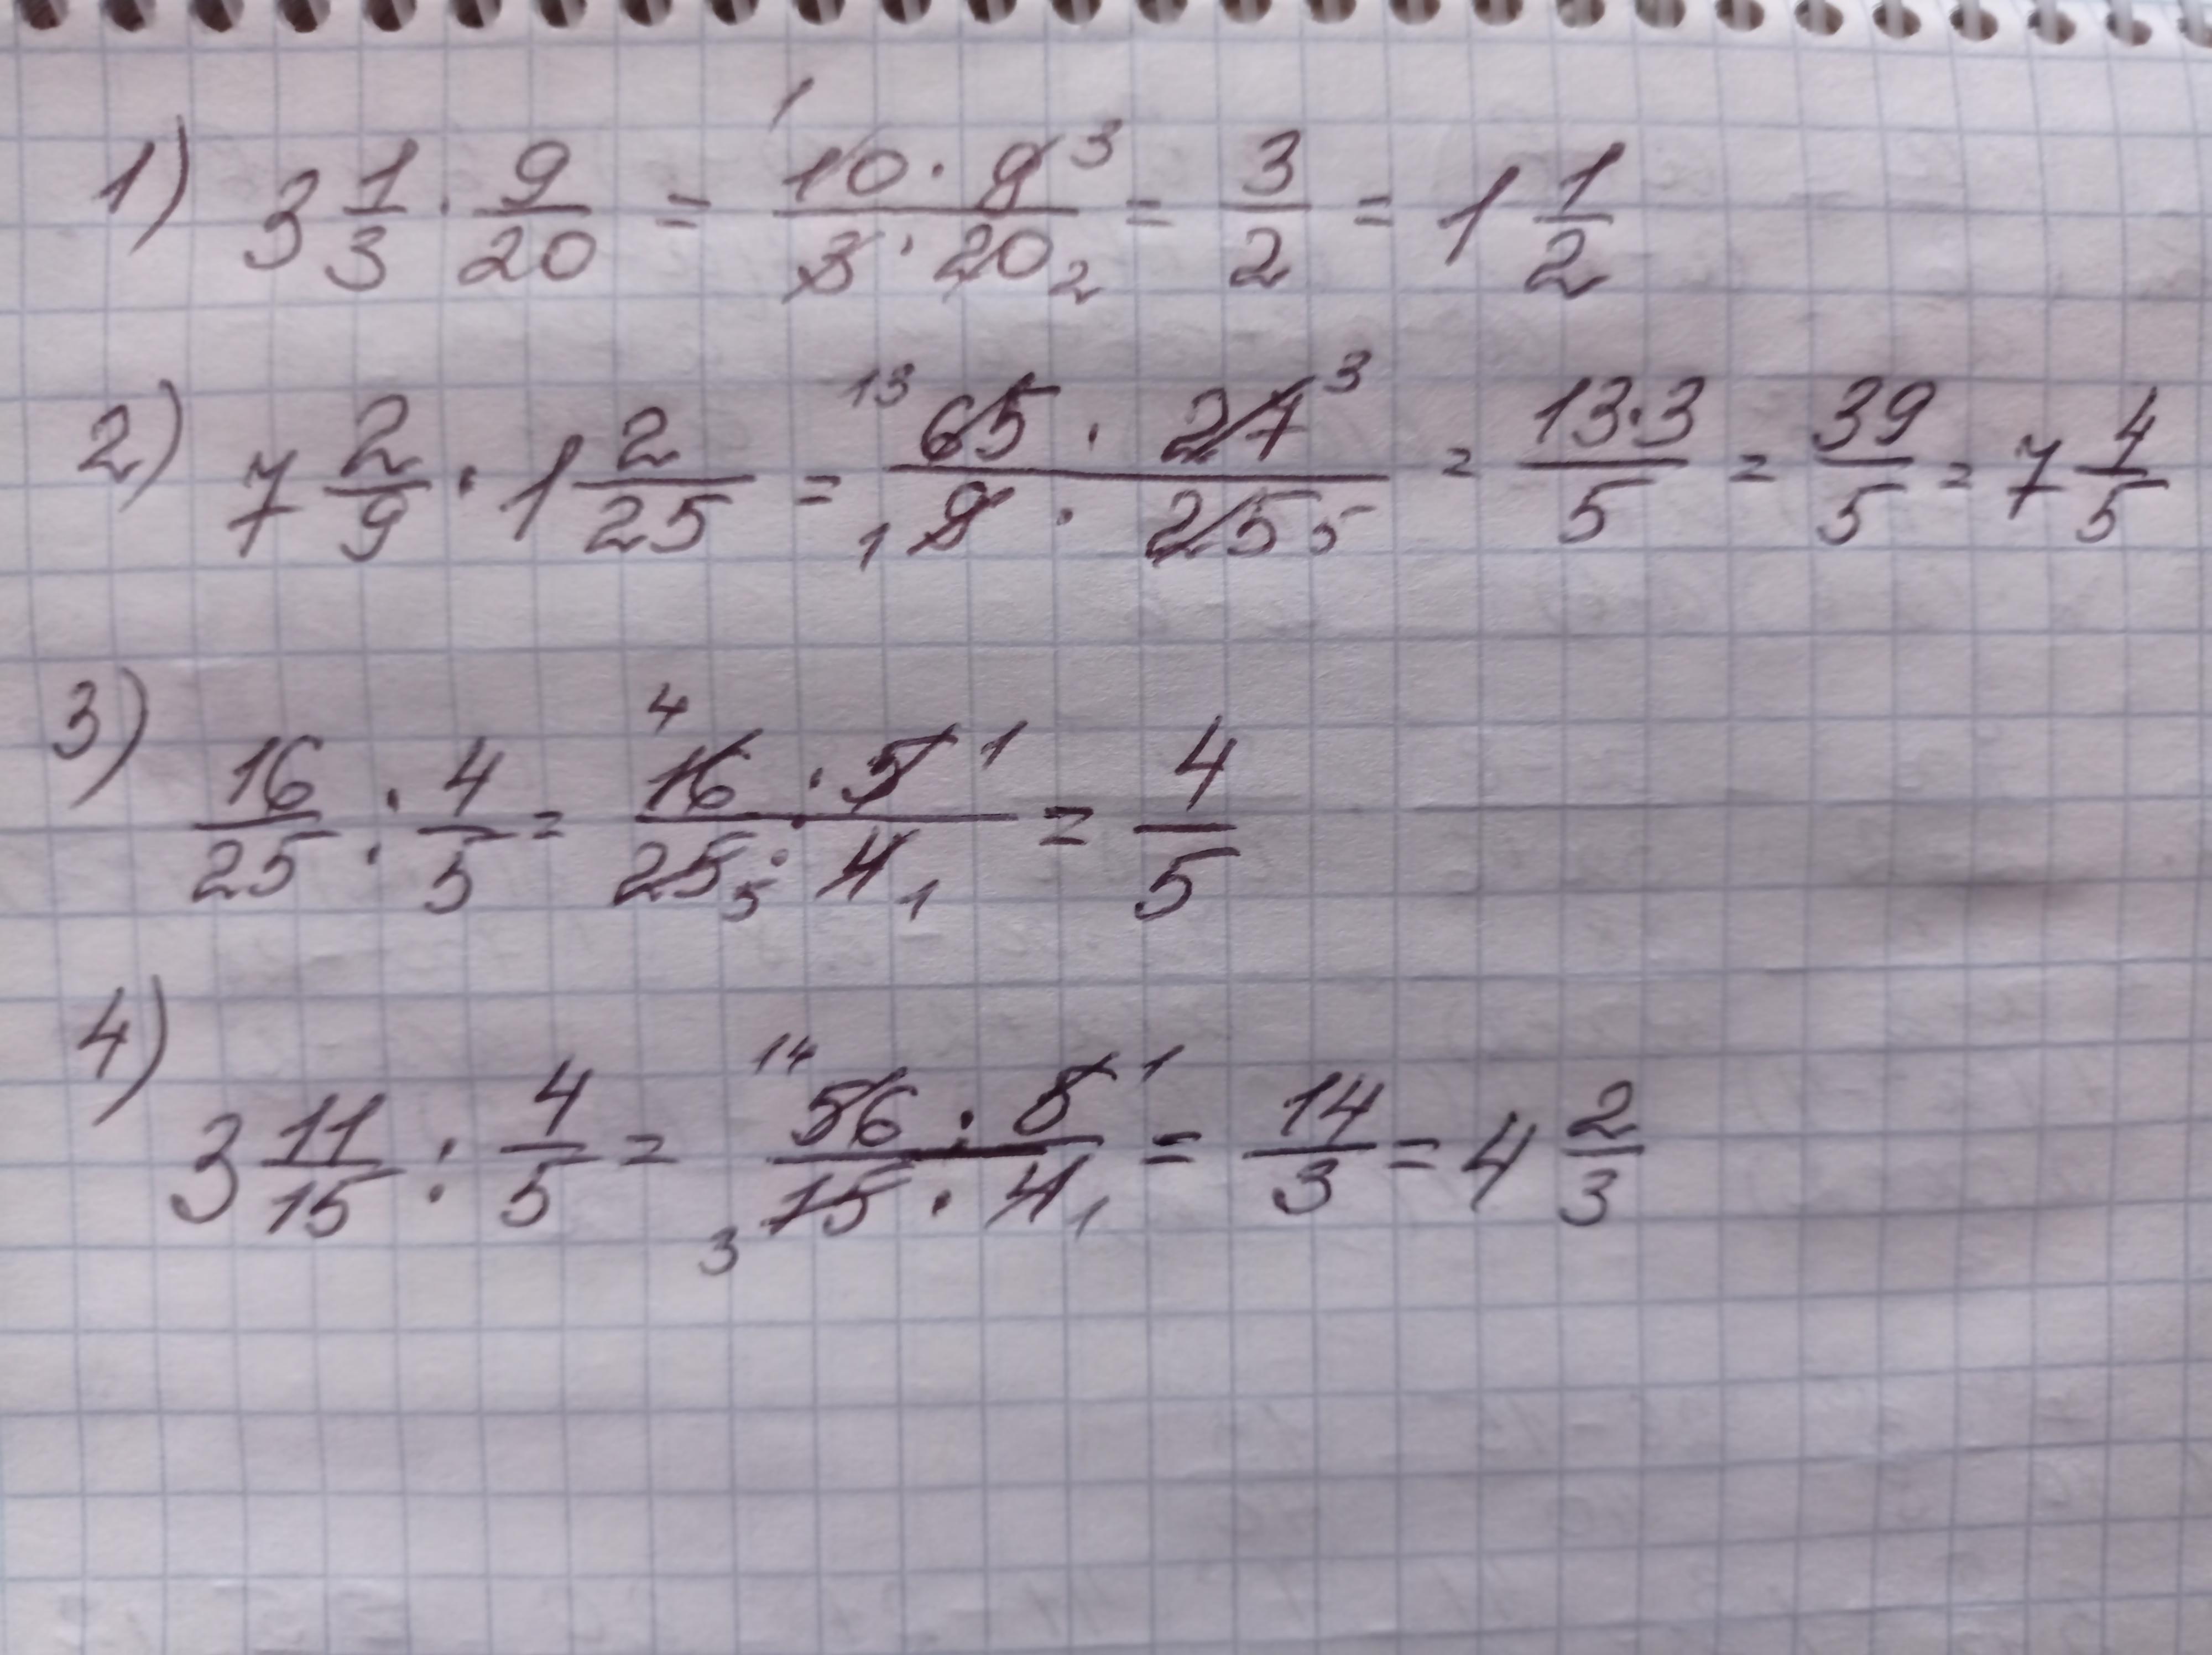 1) 3 1/3 · 9/20 = 10 · 9 / 3 · 20 = 3/2 = 1 1/2
2) 7 2/9 · 1 2/25 = 65 · 27 / 9 · 25 = 13·3 / 5 = 39/5 = 7 4/5
3) 16/25 : 4/5 = 16 · 5 / 25 · 4 = 4/5
4) 3 11/15 : 4/5 = 56 · 5 / 15 · 4 = 14/3 = 4 2/3